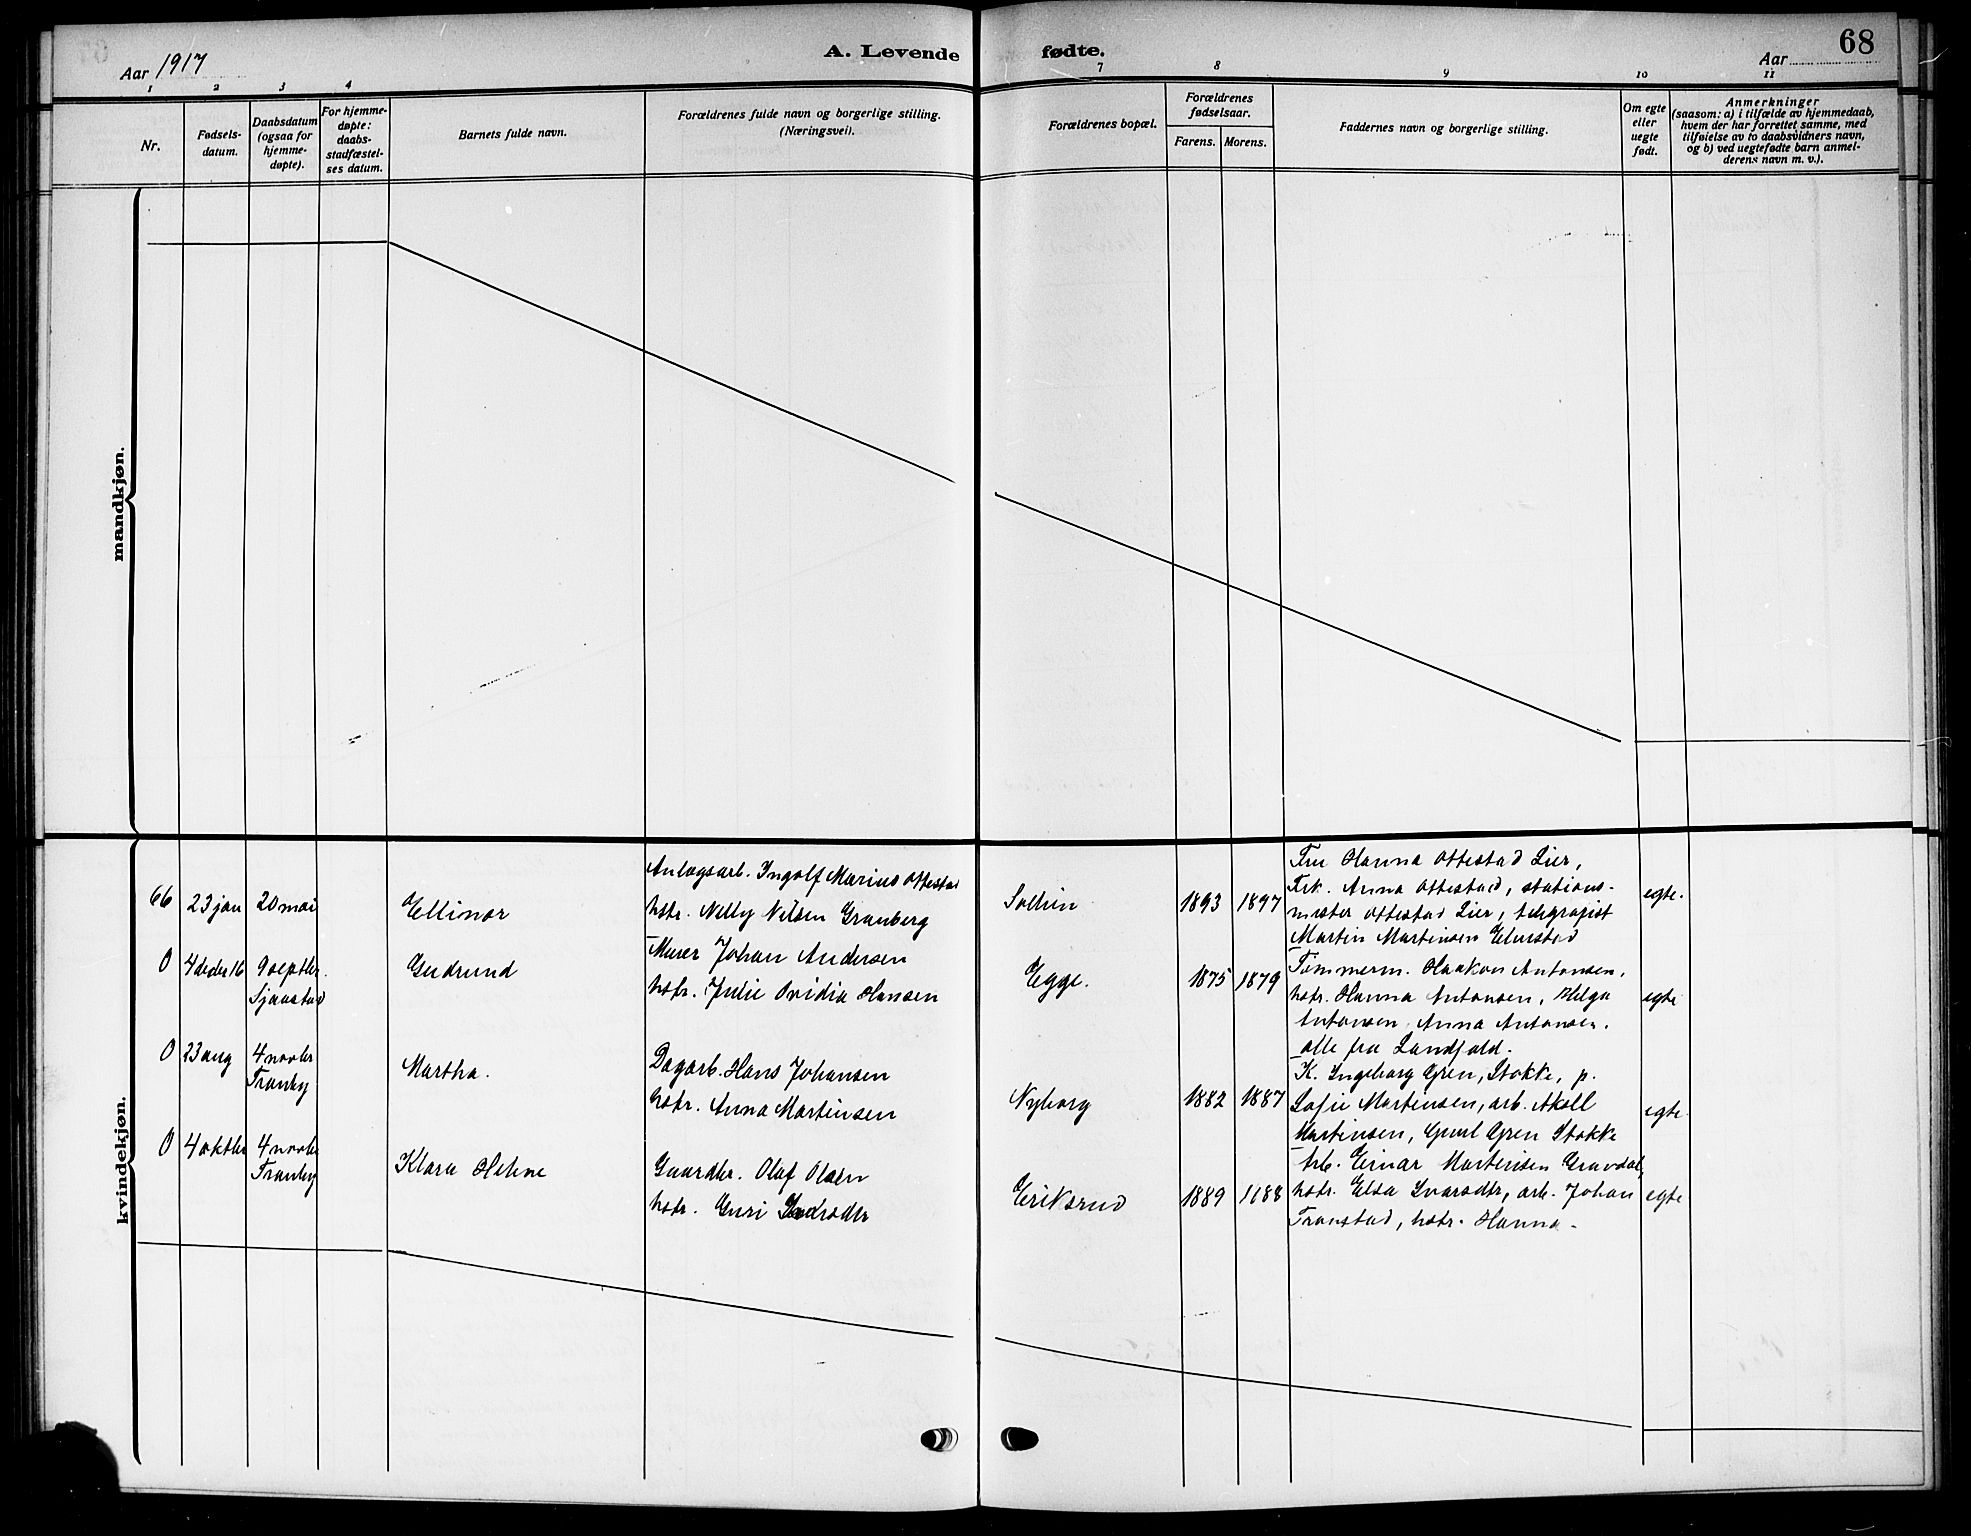 68
Aar 1917
A. Levende fødte.
Aar
1 2 3 4 7 8 9 10 11
Nr.
Fødsels-
datum.
Daabsdatum
(ogsaa for
hjemme-
døpte).
For hjemme-
døpte:
daabs-
stadfæstel-
ses datum.
Barnets fulde navn.
Forældrenes fulde navn og borgerlige stilling.
(Næringsvei).
Forældrenes bopæl.
Forældrenes
fødselsaar.
Farens. Morens.
Faddernes navn og borgerlige stilling.
Om egte
eller
uegte
født.
Anmerkninger
(saasom: a) i tilfælde av hjemmedaab,
hvem der har forrettet samme, med
tilføielse av to daabsvidners navn,
og b) ved uegtefødte barn anmel-
derens navn m. v.).
mandkjøn.
kvindekjøn.
66 23 jan 20 mai
Ellinor
Anlægsarb. Ingolf Marius Ottestad
hstr. Nelly Nilsen Granberg
Solhin
1893 1897
Fru Hanna Ottestad Lier,
Frk. Anna Ottestad, stations-
mester Ottestad Lier, telegrafist
Martin Martinsen Elmstad
egte.
0 4 decbr 16 9 septbr.
Sjaastad
Gudrund
Murer Johan Andersen
hstr. Julie Ovidia Hansen
Egge.
1875 1879
Tømmerm. Haakon Antonsen,
hstr. Hanna Antonsen, Helga
Antonsen, Anna Antonsen.
alle fra Landfald.
egte
0 23 aug 4 novbr
Tranby
Martha.
Dagarb. Hans Johansen
hstr. Anna Martinsen
Nyborg
1882 1887
K. Ingeborg Gren, Stokke, p.
Sofie Martinsen, arb. Aksll
Martinsen, Gren Stokke
egte
0 4 oktbr 4 novbr
Tranby
Klara Helene
Gaardbr. Olaf Olsen
hstr. Guri
Eriksrud
1889 1188
Arb. Einar Martinsen Gravdal,
hstr. Elsa Ivarsdtr, arb. Johan
Transtad, hstr. Hanna -
egte